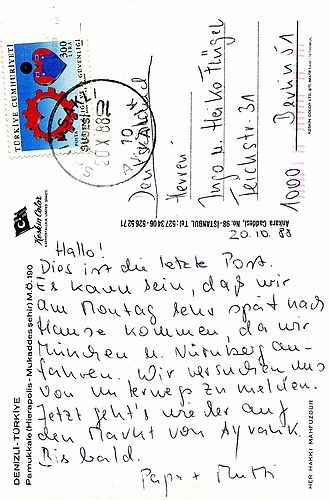 TÜRKİYE CUMHURİYETİ
300
LİRA
POSTA
20 X 88
10
Deutschland
Herren
Ingo u. Heiko Flügel
Teichstr. 31
1000 Berlin 51
KESKIN COLOR LTD. ŞTİ. MATBAASI
Keskin Color
Ankara Caddesi, No. 98 - İSTANBUL Tel : 527 34 06 - 526 52 71
20.10.88
Hallo!
Dies ist die letzte Post.
Es kann sein, daß wir
am Montag sehr spät nach
Hause kommen, da wir
München u. Nürnberg an-
fahren. Wir versuchen uns
von unterwegs zu melden.
Jetzt geht's wieder auf
den Markt von Ayvalik.
Bis bald.
Papi + Mutti
DENİZLİ - TÜRKİYE
Pamukkale (Hierapolis - Mukaddes şehir) M.Ö. 190
HER HAKKI MAHFUZDUR